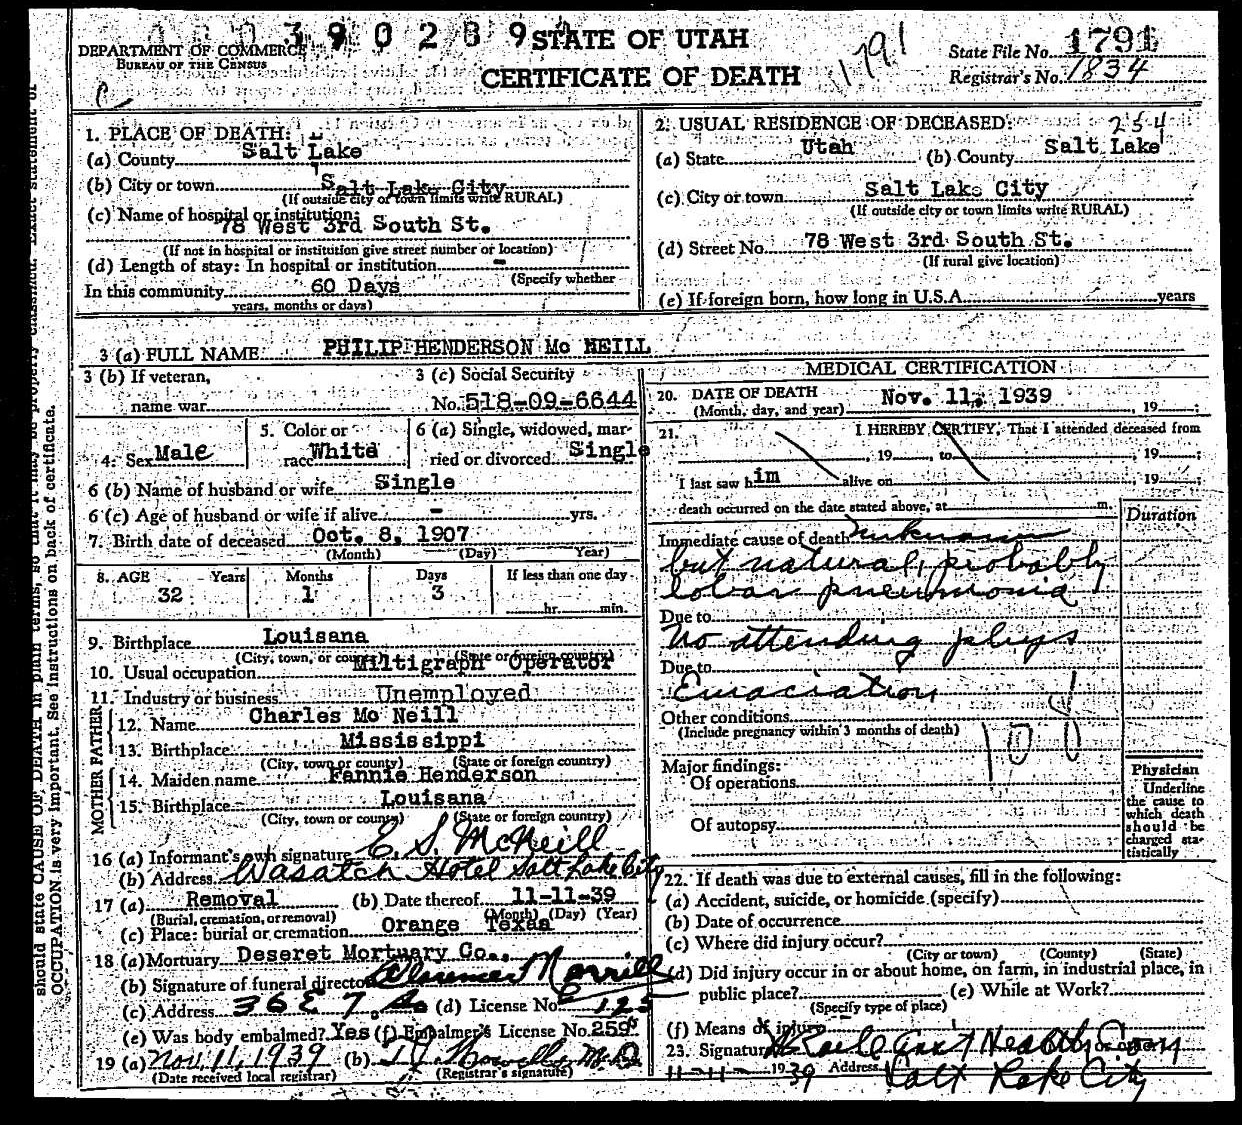 0390289
DEPARTMENT OF COMMERCE
BUREAU OF THE CENSUS
STATE OF UTAH
CERTIFICATE OF DEATH
1791
State File No. 1791
Registrar's No. 1834
1. PLACE OF DEATH:
(a) County Salt Lake
(b) City or town Salt Lake City
(If outside city or town limits write RURAL)
(c) Name of hospital or institution:
78 West 3rd South St.
(If not in hospital or institution give street number or location)
(d) Length of stay: In hospital or institution -
(Specify whether
In this community 60 Days
years, months or days)
2. USUAL RESIDENCE OF DECEASED: 254
(a) State Utah (b) County Salt Lake
(c) City or town Salt Lake City
(If outside city or town limits write RURAL)
(d) Street No. 78 West 3rd South St.
(If rural give location)
(e) If foreign born, how long in U.S.A. years
3 (a) FULL NAME PHILIP HENDERSON Mc NEILL
3 (b) If veteran,
name war
3 (c) Social Security
No. 518-09-6644
4. Sex Male
5. Color or
race White
6 (a) Single, widowed, mar-
ried or divorced Single
6 (b) Name of husband or wife Single
6 (c) Age of husband or wife if alive - yrs.
7. Birth date of deceased Oct. 8, 1907
(Month) (Day) Year)
8. AGE Years Months Days If less than one day
32 1 3 hr. min.
9. Birthplace Louisana
(City, town, or county) (State or foreign country)
10. Usual occupation Miltigraph Operator
11. Industry or business Unemployed
FATHER
12. Name Charles Mc Neill
13. Birthplace Mississippi
(City, town or county) (State or foreign country)
MOTHER
14. Maiden name Fannie Henderson
15. Birthplace Louisana
(City, town or county) (State or foreign country)
16 (a) Informant's own signature E. S. McNeill
(b) Address Wasatch Hotel Salt Lake City
17 (a) Removal (b) Date thereof 11-11-39
(Burial, cremation, or removal) (Month) (Day) (Year)
(c) Place: burial or cremation Orange Texas
18 (a) Mortuary Deseret Mortuary Co.,
(b) Signature of funeral director Clarence Merrill
(c) Address 36 E 7 So (d) License No. 125
(e) Was body embalmed? Yes (f) Embalmer's License No. 259
19 (a) Nov. 11, 1939 (b) M.D.
(Date received local registrar) (Registrar's signature)
MEDICAL CERTIFICATION
20. DATE OF DEATH
(Month, day, and year) Nov. 11, 1939, 19 ;
21. I HEREBY CERTIFY, That I attended deceased from
, 19 , to , 19 ;
I last saw him alive on , 19 ;
death occurred on the date stated above, at m.
Duration
Immediate cause of death Unknown
but natural, probably
lobar pneumonia
Due to
No attending phys
Due to
Emaciation
Other conditions
(Include pregnancy within 3 months of death)
108
Major findings:
Of operations
Of autopsy
Physician
Underline
the cause to
which death
should be
charged sta-
tistically
22. If death was due to external causes, fill in the following:
(a) Accident, suicide, or homicide (specify)
(b) Date of occurrence
(c) Where did injury occur?
(City or town) (County) (State)
(d) Did injury occur in or about home, on farm, in industrial place, in
public place? (e) While at Work?
(Specify type of place)
(f) Means of injury
23. Signature Ass't Health Com
11-11- 1939 Address Salt Lake City
should state CAUSE OF DEATH in plain terms, so that it may be properly classified. Exact statement of
OCCUPATION is very important. See instructions on back of certificate.